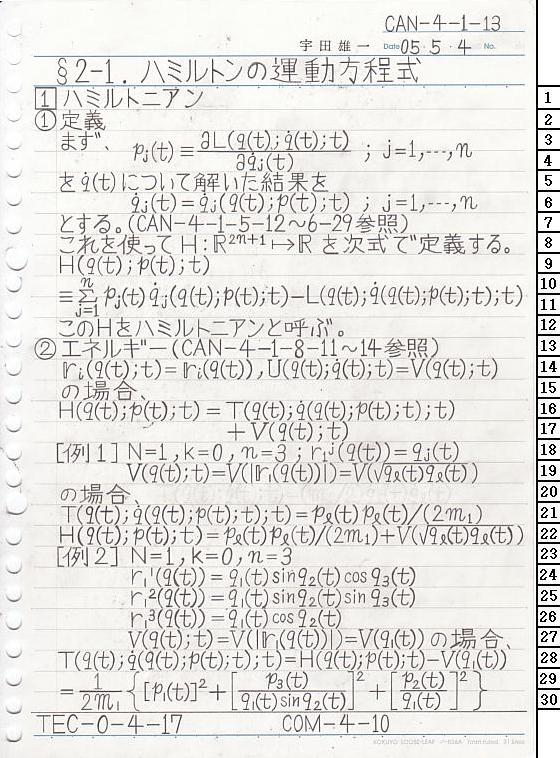 CAN-4-1-13
宇田雄一 Date 05・5・4 No.
§2-1. ハミルトンの運動方程式
1 ハミルトニアン
① 定義
まず、 pⱼ(t) ≡ ∂L(q(t);q̇(t);t)/∂q̇ⱼ(t) ; j=1,---,n
を q̇(t) について解いた結果を
q̇ⱼ(t)=q̇ⱼ(q(t);p(t);t) ; j=1,---,n
とする。(CAN-4-1-5-12〜6-29参照)
これを使って H:ℝ²ⁿ⁺¹↦ℝ を次式で定義する。
H(q(t);p(t);t)
≡Σⁿⱼ₌₁ pⱼ(t)q̇ⱼ(q(t);p(t);t)-L(q(t);q̇(q(t);p(t);t);t)
このHをハミルトニアンと呼ぶ。
② エネルギー(CAN-4-1-8-11〜14参照)
𝕣ᵢ(q(t);t)=𝕣ᵢ(q(t)),U(q(t);q̇(t);t)=V(q(t);t)
の場合、
H(q(t);p(t);t)=T(q(t);q̇(q(t);p(t);t);t)
+V(q(t);t)
[例1] N=1,k=0,n=3 ; r₁ʲ(q(t))=qⱼ(t)
V(q(t);t)=V(|𝕣₁(q(t))|)=V(√qℓ(t)qℓ(t))
の場合、
T(q(t);q̇(q(t);p(t);t);t)=pℓ(t)pℓ(t)/(2m₁)
H(q(t);p(t);t)=pℓ(t)pℓ(t)/(2m₁)+V(√qℓ(t)qℓ(t))
[例2] N=1,k=0,n=3
r₁¹(q(t))=q₁(t)sinq₂(t)cosq₃(t)
r₁²(q(t))=q₁(t)sinq₂(t)sinq₃(t)
r₁³(q(t))=q₁(t)cosq₂(t)
V(q(t);t)=V(|𝕣₁(q(t))|)=V(q₁(t))の場合、
T(q(t);q̇(q(t);p(t);t);t)=H(q(t);p(t);t)-V(q₁(t))
=1/2m₁{[p₁(t)]²+[p₃(t)/q₁(t)sinq₂(t)]²+[p₂(t)/q₁(t)]²}
TEC-0-4-17 COM-4-10
1
2
3
4
5
6
7
8
9
10
11
12
13
14
15
16
17
18
19
20
21
22
23
24
25
26
27
28
29
30